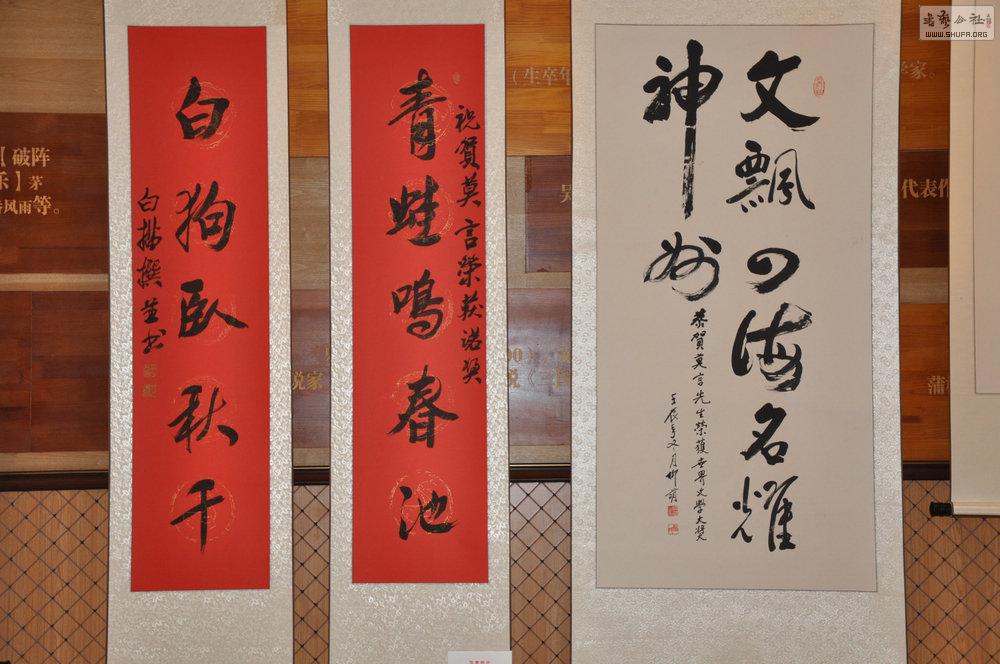 書藝公社
WWW.SHUFA.ORG
文飄四海名耀
神州
恭賀莫言先生榮獲世界文學大獎
壬辰年冬月柳萌
祝賀莫言榮获诺奖
青蛙鳴春池
白狗臥秋千
白描撰並书
(生卒年
学家。
【破阵
乐】茅
风雨等。
代表作
说家
说《
蒲